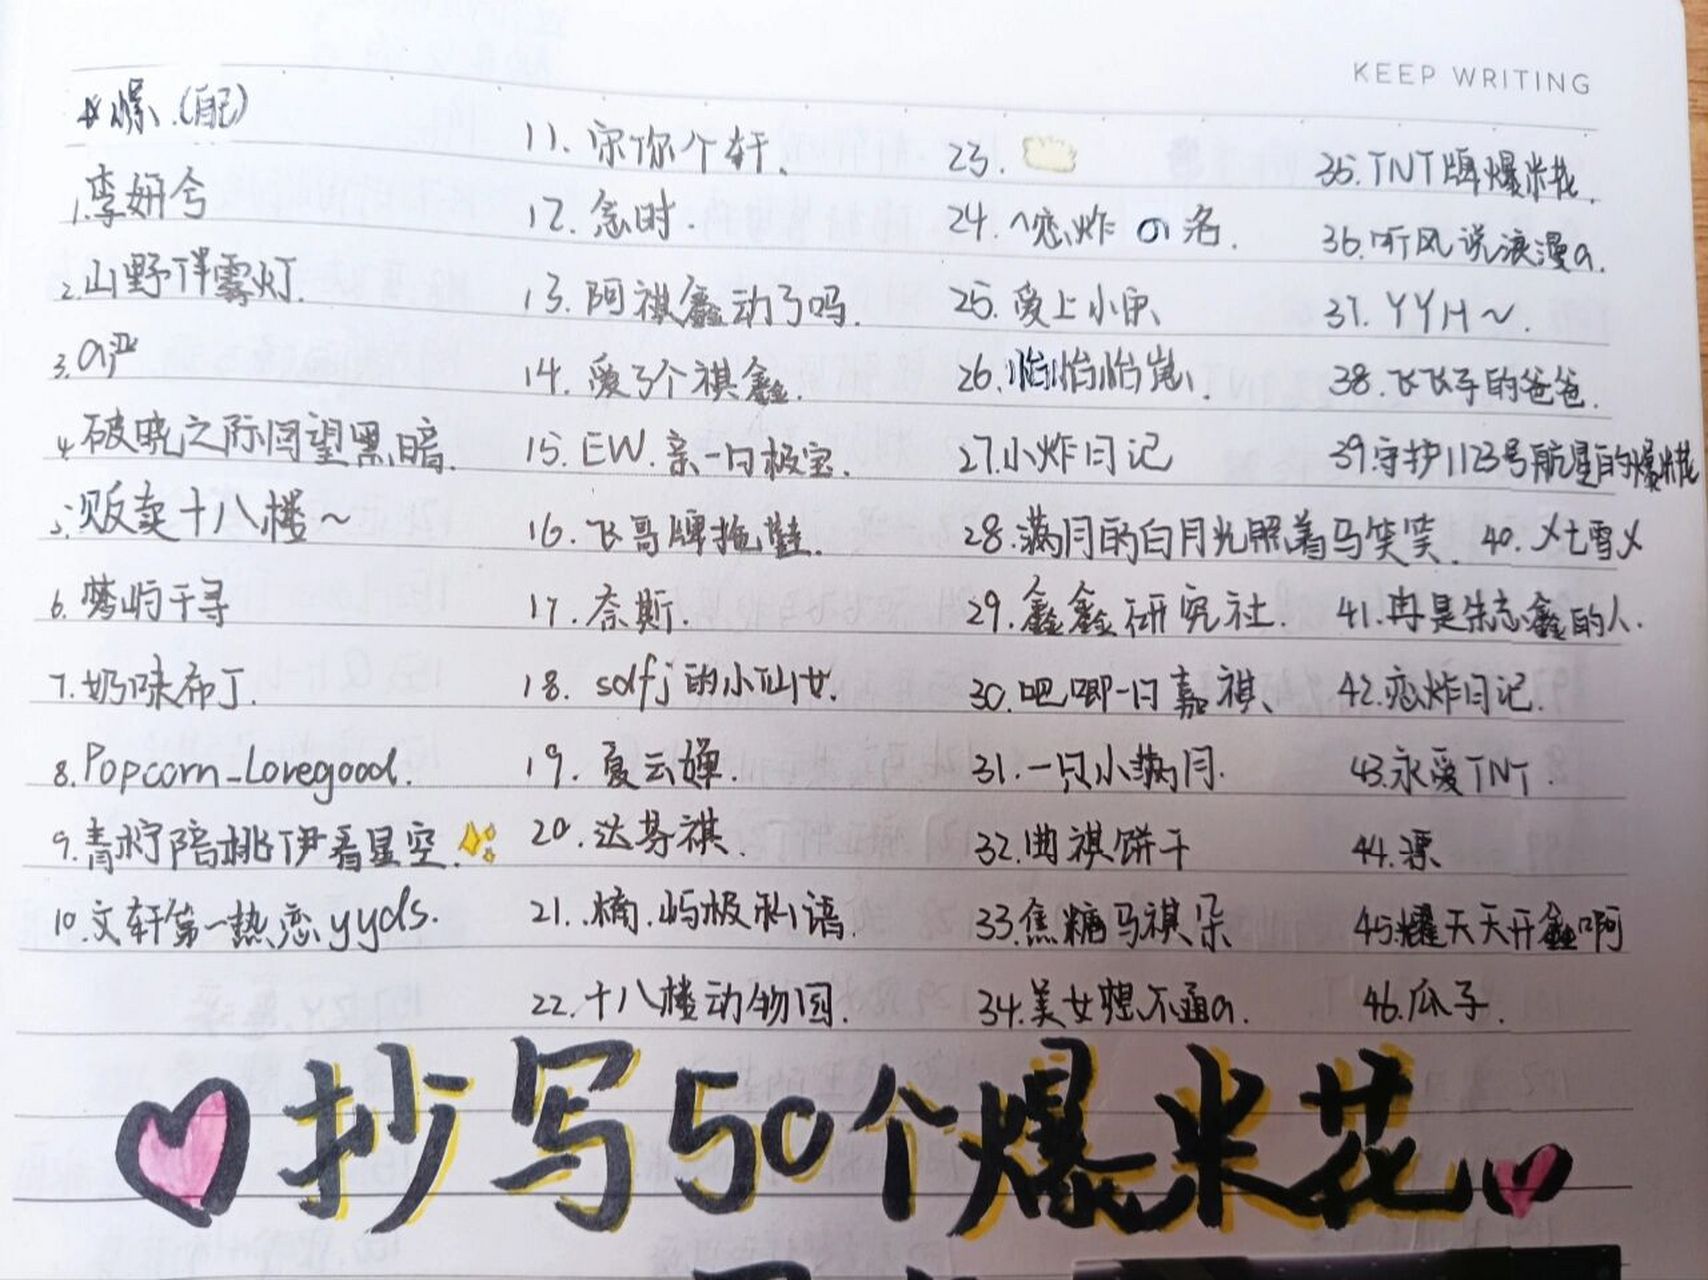 KEEP WRITING
爆.(自己)
1.李妍兮
2.山野伴雾灯.
3.a严
4.破晓之际回望黑暗.
5.贩卖十八楼~
6.梦屿千寻
7.奶味布丁.
8.Popcorn_Lovegood.
9.青柠陪桃伊看星空.
10.文轩第一热恋yyds.
11.宋你个轩.
12.念时.
13.阿祺鑫动了吗.
14.爱了个祺鑫.
15.EW.亲一口极宝.
16.飞哥牌拖鞋.
17.奈斯.
18.sdfj的小仙女.
19.夏云婵.
20.达芬祺.
21.屿极私语.
22.十八楼动物园.
23.
24.恋炸の洺.
25.爱上小
26.怡怡怡嵬.
27.小炸日记
28.满月的白月光照着马笑笑.
29.鑫鑫研究社.
30.吧唧一口嘉祺、
31.一只小满月.
32.曲祺饼干
33.焦糖马祺朵
34.美女想不通a.
35.TNT牌爆米花.
36.听风说浪漫a.
37.YYH~.
38.飞飞子的爸爸.
39.守护1123号航星的爆米花
40.
41.冉是朱志鑫的人.
42.恋炸日记.
43.永爱TNT.
44.漂
45.耀天天开鑫啊
46.瓜子.
抄写50个爆米花